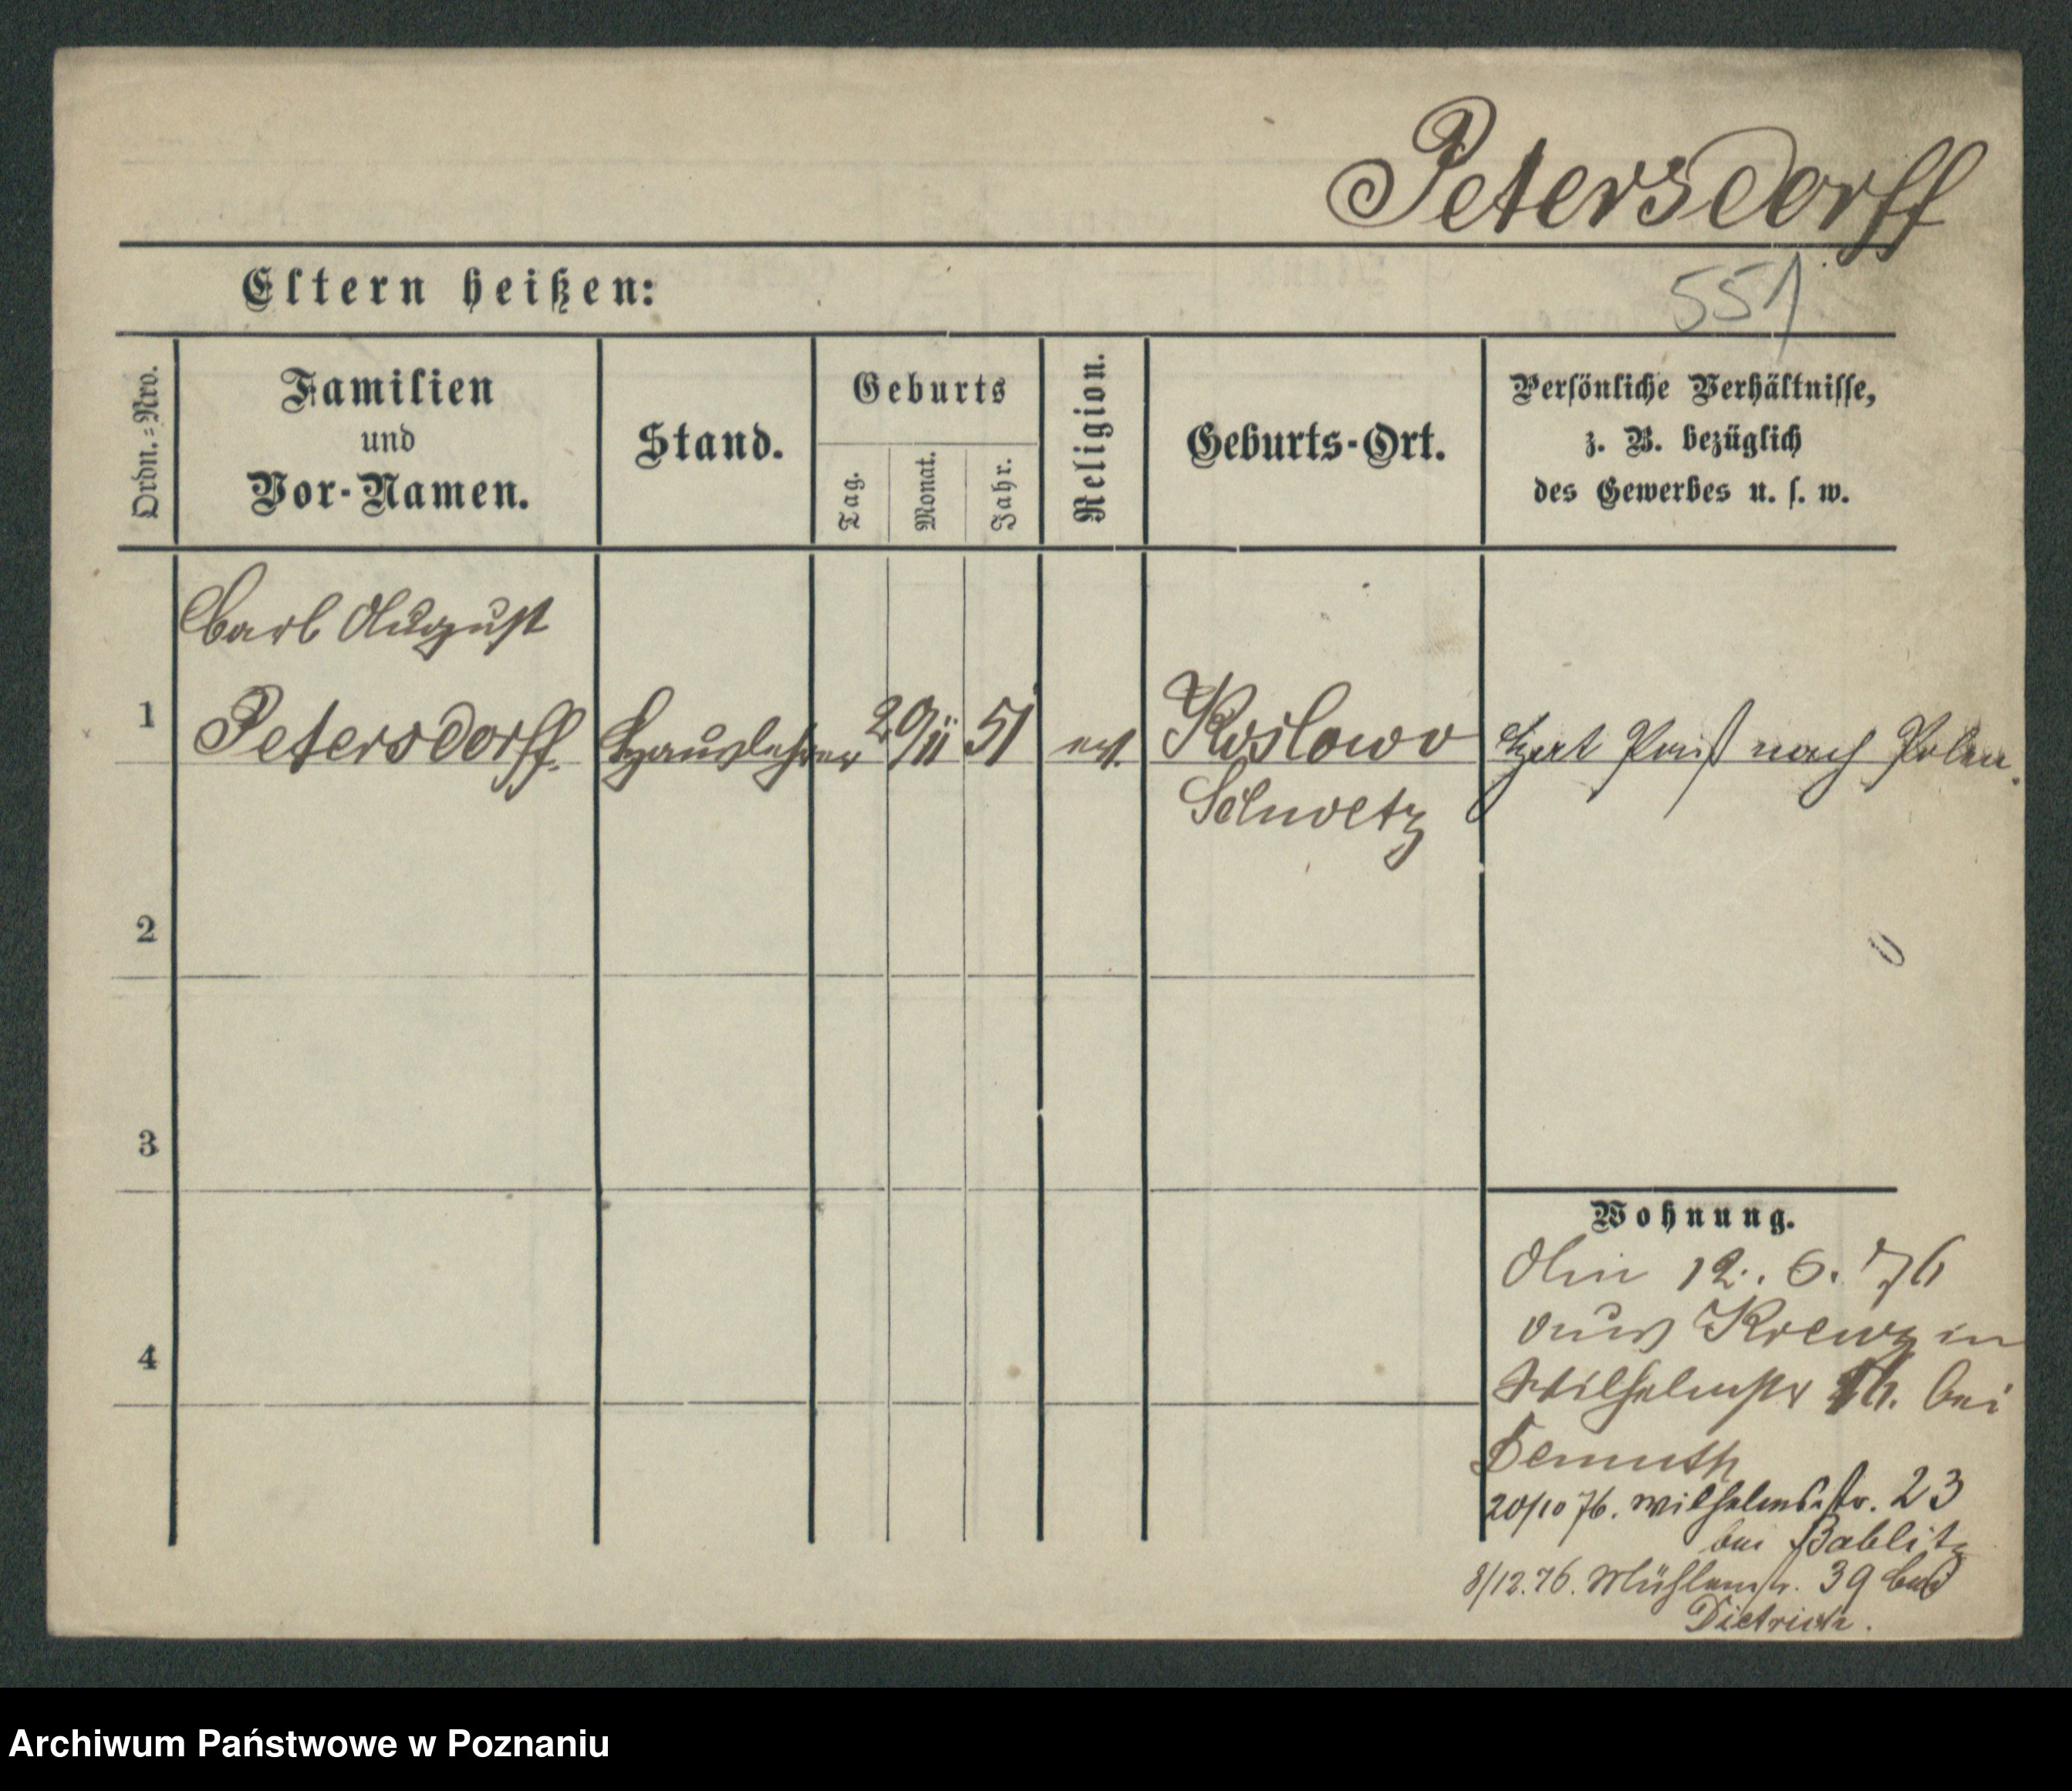 Petersdorff
551
Eltern heißen:
Ordn.=Nro.
Familien
und
Vor-Namen.
Stand.
Geburts
Tag.
Monat.
Jahr.
Religion.
Geburts-Ort.
Persönliche Verhältnisse,
z. B. bezüglich
des Gewerbes u. s. w.
Carl August
1 Petersdorff. Hauslehrer 29/11 51 ev. Koslowo Hat Paß nach Polen.
Schwetz
2
3
Wohnung.
12. 6. 76
aus in
4
Wilhelmstr bei
Demuth
20/10 76. Wilhelmsstr. 23
bei Bablitz
8/12.76. Mühlenstr. 39 bei
Dietrich.
Archiwum Państwowe w Poznaniu